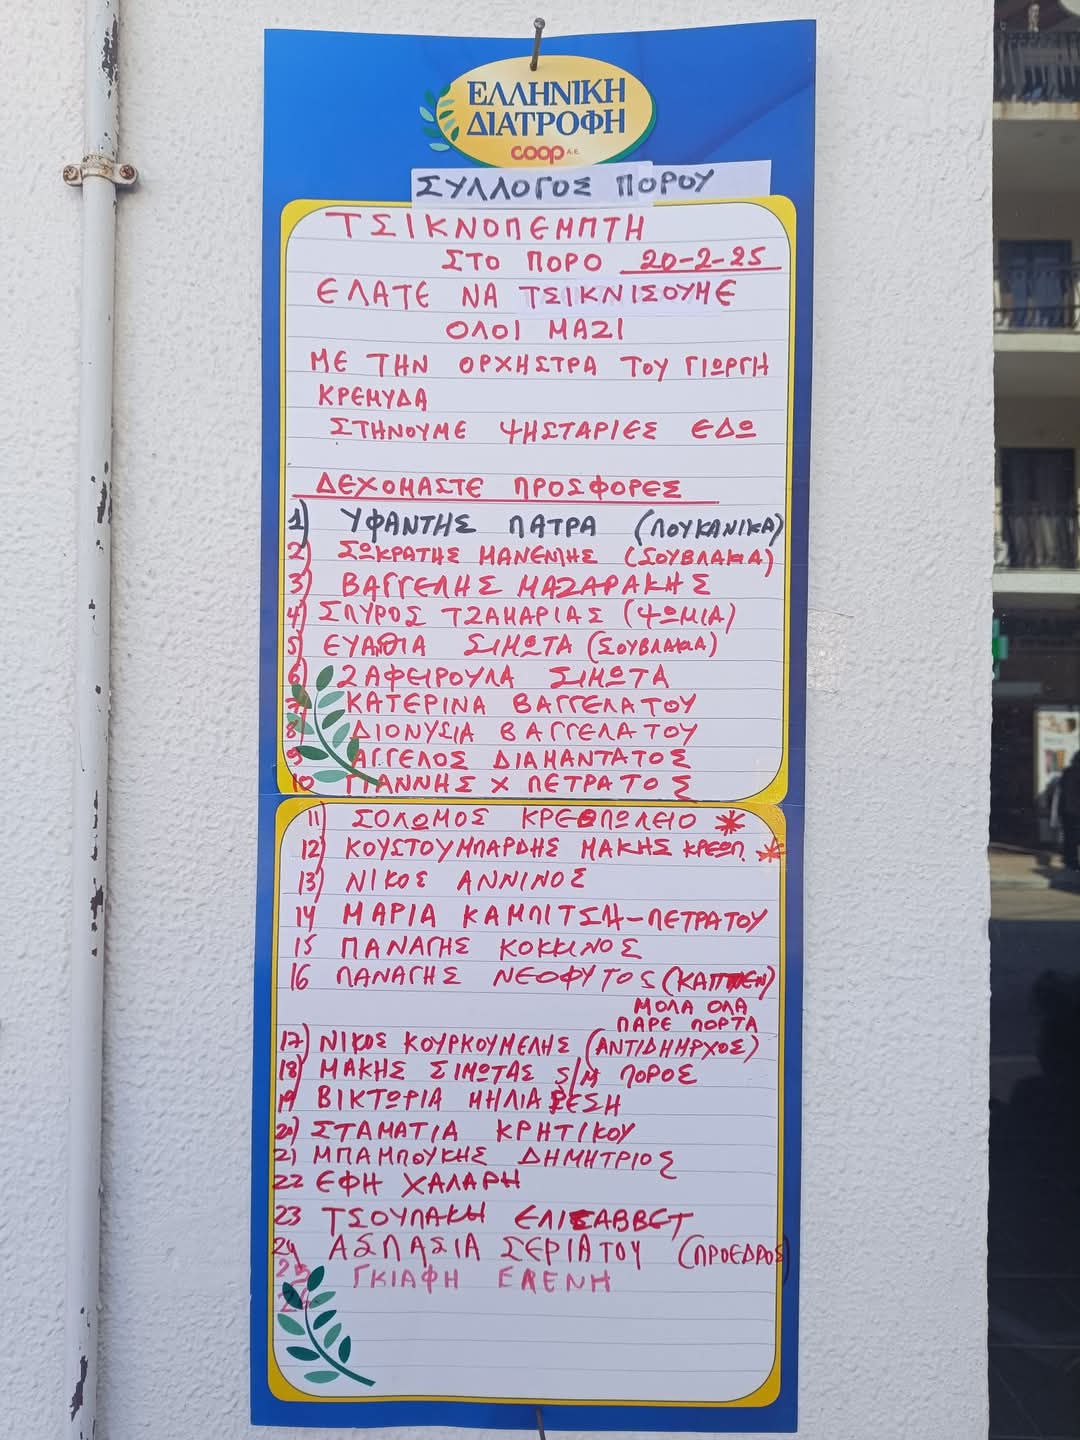 ΕΛΛΗΝΙΚΗ
ΔΙΑΤΡΟΦΗ
coop Α.Ε.
ΣΥΛΛΟΓΟΣ ΠΟΡΟΥ
ΤΣΙΚΝΟΠΕΜΠΤΗ
ΣΤΟ ΠΟΡΟ 20-2-25
ΕΛΑΤΕ ΝΑ ΤΣΙΚΝΙΣΟΥΜΕ
ΟΛΟΙ ΜΑΖΙ
ΜΕ ΤΗΝ ΟΡΧΗΣΤΡΑ ΤΟΥ ΓΙΩΡΓΗ
ΚΡΕΜΥΔΑ
ΣΤΗΝΟΥΜΕ ΨΗΣΤΑΡΙΕΣ ΕΔΩ
ΔΕΧΟΜΑΣΤΕ ΠΡΟΣΦΟΡΕΣ
1) ΥΦΑΝΤΗΣ ΠΑΤΡΑ (ΛΟΥΚΑΝΙΚΑ)
2) ΣΩΚΡΑΤΗΣ ΜΑΝΕΝΤΗΣ (ΣΟΥΒΛΑΚΙΑ)
3) ΒΑΓΓΕΛΗΣ ΜΑΖΑΡΑΚΗΣ
4) ΣΠΥΡΟΣ ΤΖΑΜΑΡΙΑΣ (ΨΩΜΙΑ)
5) ΕΥΑΘΙΑ ΣΙΜΩΤΑ (ΣΟΥΒΛΑΚΙΑ)
6) ΖΑΦΕΙΡΟΥΛΑ ΣΙΜΩΤΑ
7 ΚΑΤΕΡΙΝΑ ΒΑΓΓΕΛΑΤΟΥ
8) ΔΙΟΝΥΣΙΑ ΒΑΓΓΕΛΑΤΟΥ
9 ΑΓΓΕΛΟΣ ΔΙΑΜΑΝΤΑΤΟΣ
10 ΓΙΑΝΝΗΣ Χ ΠΕΤΡΑΤΟΣ
11) ΣΟΛΩΜΟΣ ΚΡΕΟΠΩΛΕΙΟ *
12) ΚΟΥΣΤΟΥΜΠΑΡΔΗΣ ΜΑΚΗΣ ΚΡΕΩΠ. *
13) ΝΙΚΟΣ ΑΝΝΙΝΟΣ
14 ΜΑΡΙΑ ΚΑΜΠΙΤΣΗ-ΠΕΤΡΑΤΟΥ
15 ΠΑΝΑΓΗΣ ΚΟΚΚΙΝΟΣ
16 ΠΑΝΑΓΗΣ ΝΕΟΦΥΤΟΣ (ΚΑΠΤΕΝ)
ΜΟΛΑ ΟΛΑ
ΠΑΡΕ ΠΟΡΤΑ
17) ΝΙΚΟΣ ΚΟΥΡΚΟΥΜΕΛΗΣ (ΑΝΤΙΔΗΜΡΧΟΣ)
18) ΜΑΚΗΣ ΣΙΜΩΤΑΣ S/M ΠΟΡΟΣ
19 ΒΙΚΤΩΡΙΑ ΜΗΛΙΑΡΕΣΗ
20) ΣΤΑΜΑΤΙΑ ΚΡΗΤΙΚΟΥ
21 ΜΠΑΜΠΟΥΚΗΣ ΔΗΜΗΤΡΙΟΣ
22 ΕΦΗ ΧΑΛΑΡΗ
23 ΤΣΟΥΠΑΚΗ ΕΛΙΣΑΒΒΕΤ
24 ΑΣΠΑΣΙΑ ΣΕΡΙΑΤΟΥ (ΠΡΟΕΔΡΟΣ)
25 ΓΚΙΑΦΗ ΕΛΕΝΗ
26